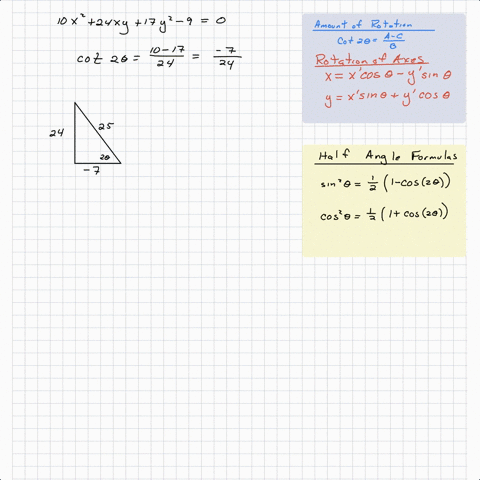 10x² + 24xy + 17y² - 9 = 0
cot 2θ = 10-17/24 = -7/24
24
25
2θ
-7
Amount of Rotation
Cot 2θ = A-C/B
Rotation of Axes
x = x'cos θ - y'sin θ
y = x'sin θ + y'cos θ
Half Angle Formulas
sin²θ = 1/2 (1-cos(2θ))
cos²θ = 1/2 (1+cos(2θ))